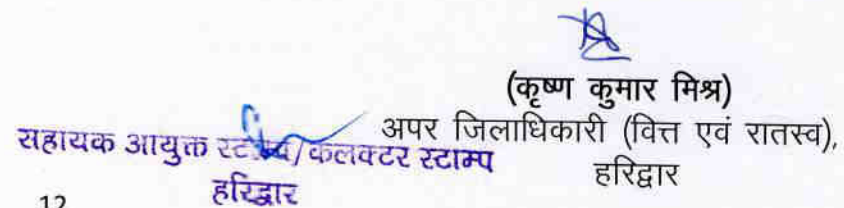 (कृष्ण कुमार मिश्र)
अपर जिलाधिकारी (वित्त एवं रातस्व),
हरिद्वार
सहायक आयुक्त स्टाम्प/कलक्टर स्टाम्प
हरिद्वार
12